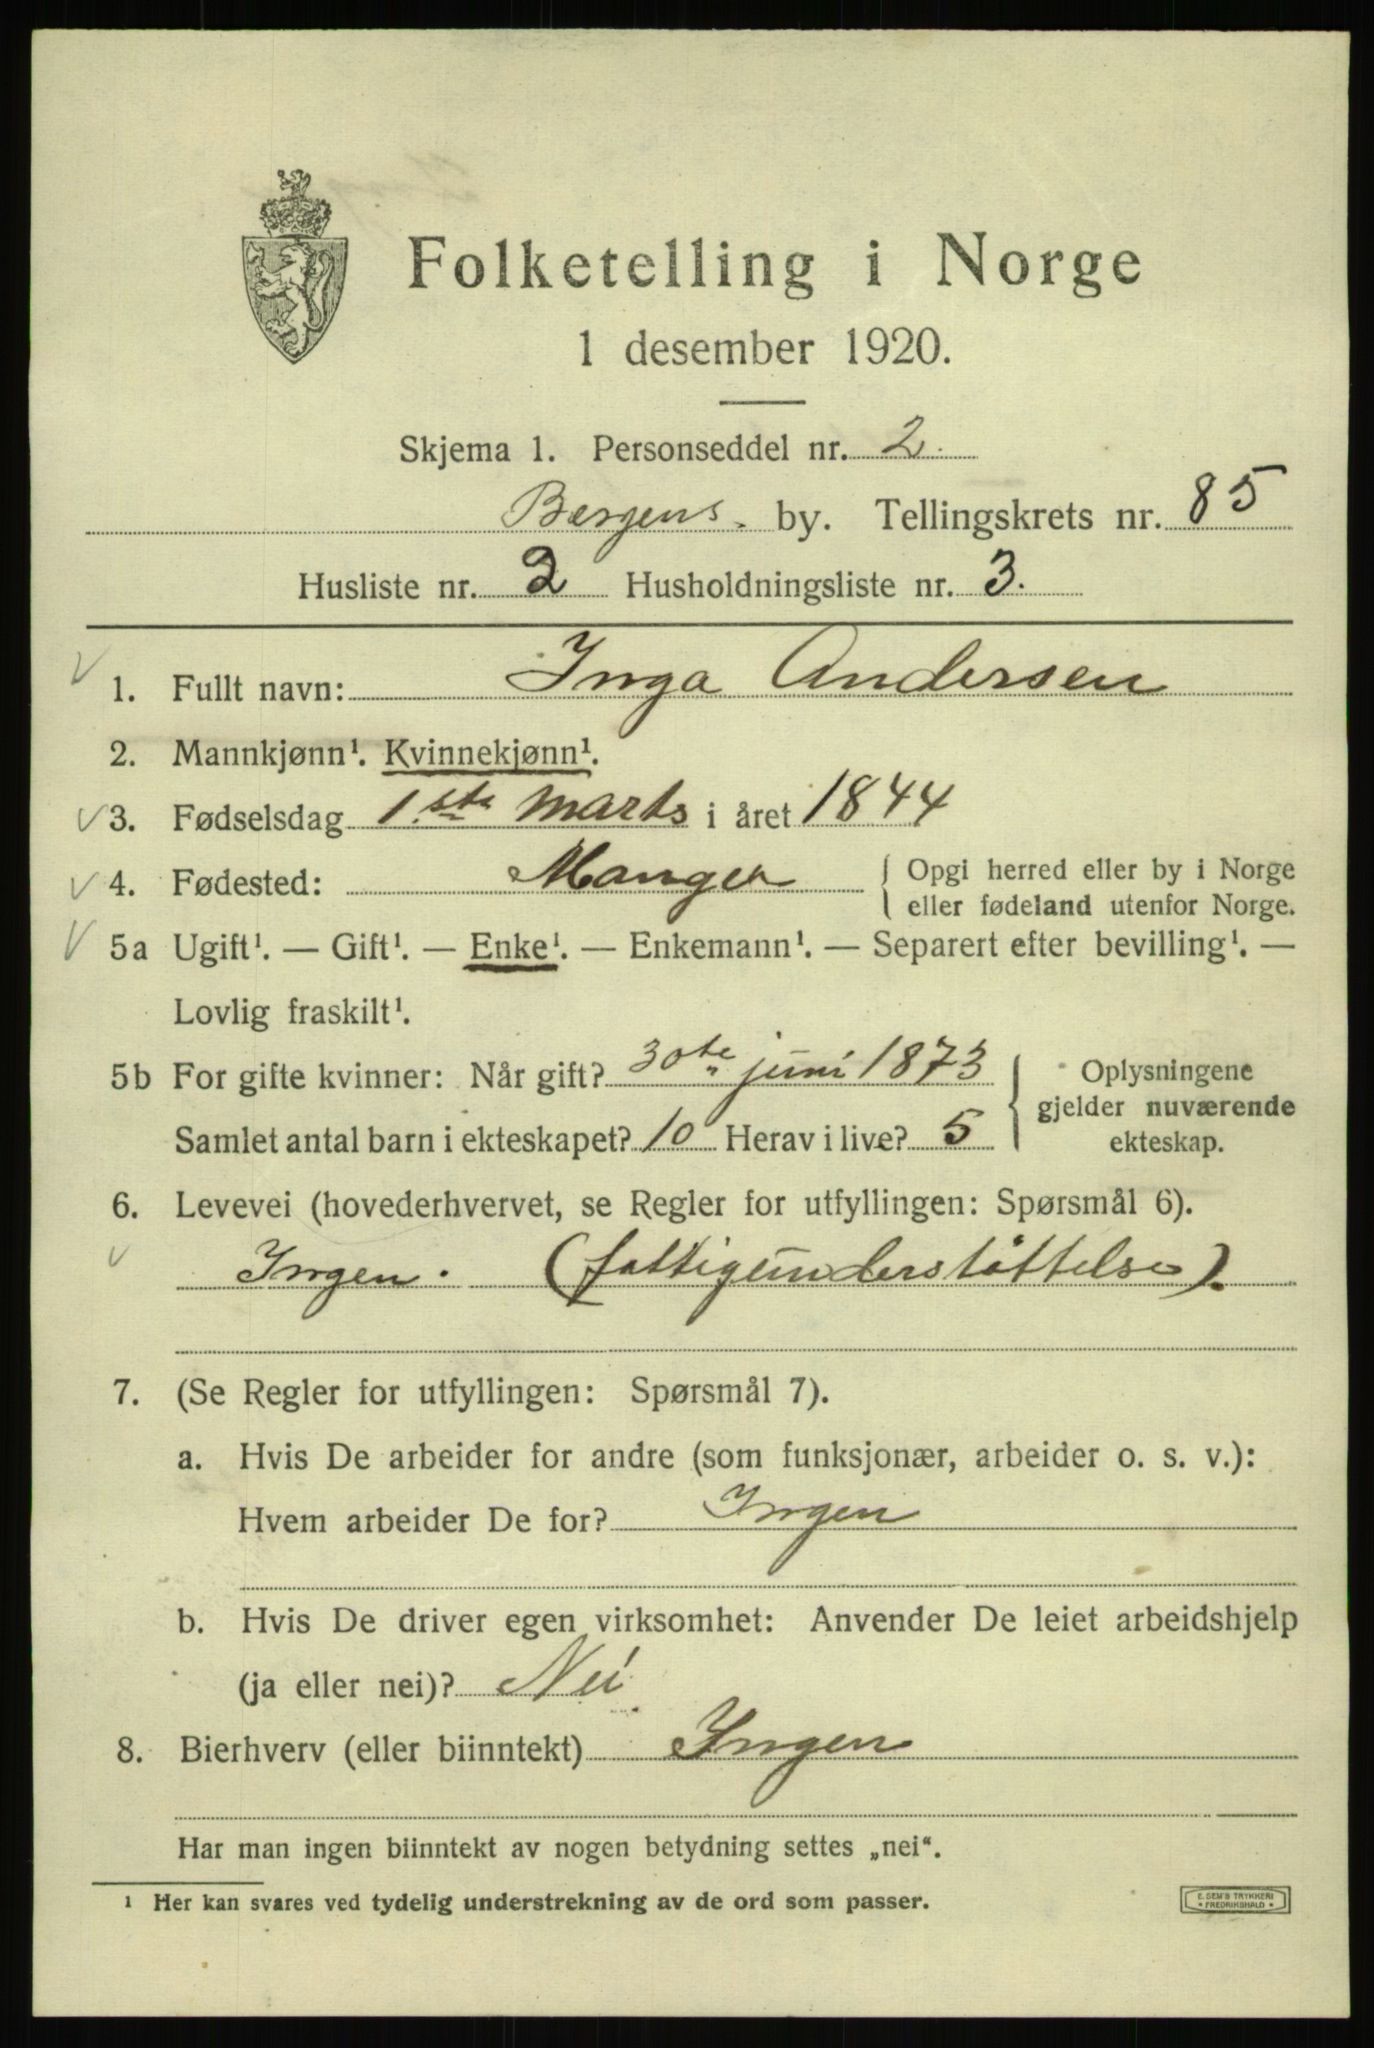 Folketelling i Norge
1 desember 1920.
Skjema 1. Personseddel nr. 2.
Bergens. by. Tellingskrets nr. 85
Husliste nr. 2 Husholdningsliste nr. 3.
1. Fullt navn: Inga Andersen
2. Mannkjønn¹. Kvinnekjønn¹.
3. Fødselsdag 1.ste Marts i året 1844
4. Fødested: Manger { Opgi herred eller by i Norge
eller fødeland utenfor Norge.
5a Ugift¹. — Gift¹. — Enke¹. — Enkemann¹. — Separert efter bevilling¹. —
Lovlig fraskilt¹.
5b For gifte kvinner: Når gift? 30te juni 1873 { Oplysningene
gjelder nuværende
Samlet antal barn i ekteskapet? 10 Herav i live? 5 ekteskap.
6. Levevei (hovederhvervet, se Regler for utfyllingen: Spørsmål 6).
Ingen. (fattigunderstøttelse).
7. (Se Regler for utfyllingen: Spørsmål 7).
a. Hvis De arbeider for andre (som funksjonær, arbeider o. s. v.):
Hvem arbeider De for? Ingen
b. Hvis De driver egen virksomhet: Anvender De leiet arbeidshjelp
(ja eller nei)? Nei
8. Bierhverv (eller biinntekt) Ingen
Har man ingen biinntekt av nogen betydning settes „nei“.
¹ Her kan svares ved tydelig understrekning av de ord som passer.
E. SEM'S TRYKKERI
* FREDRIKSHALD *